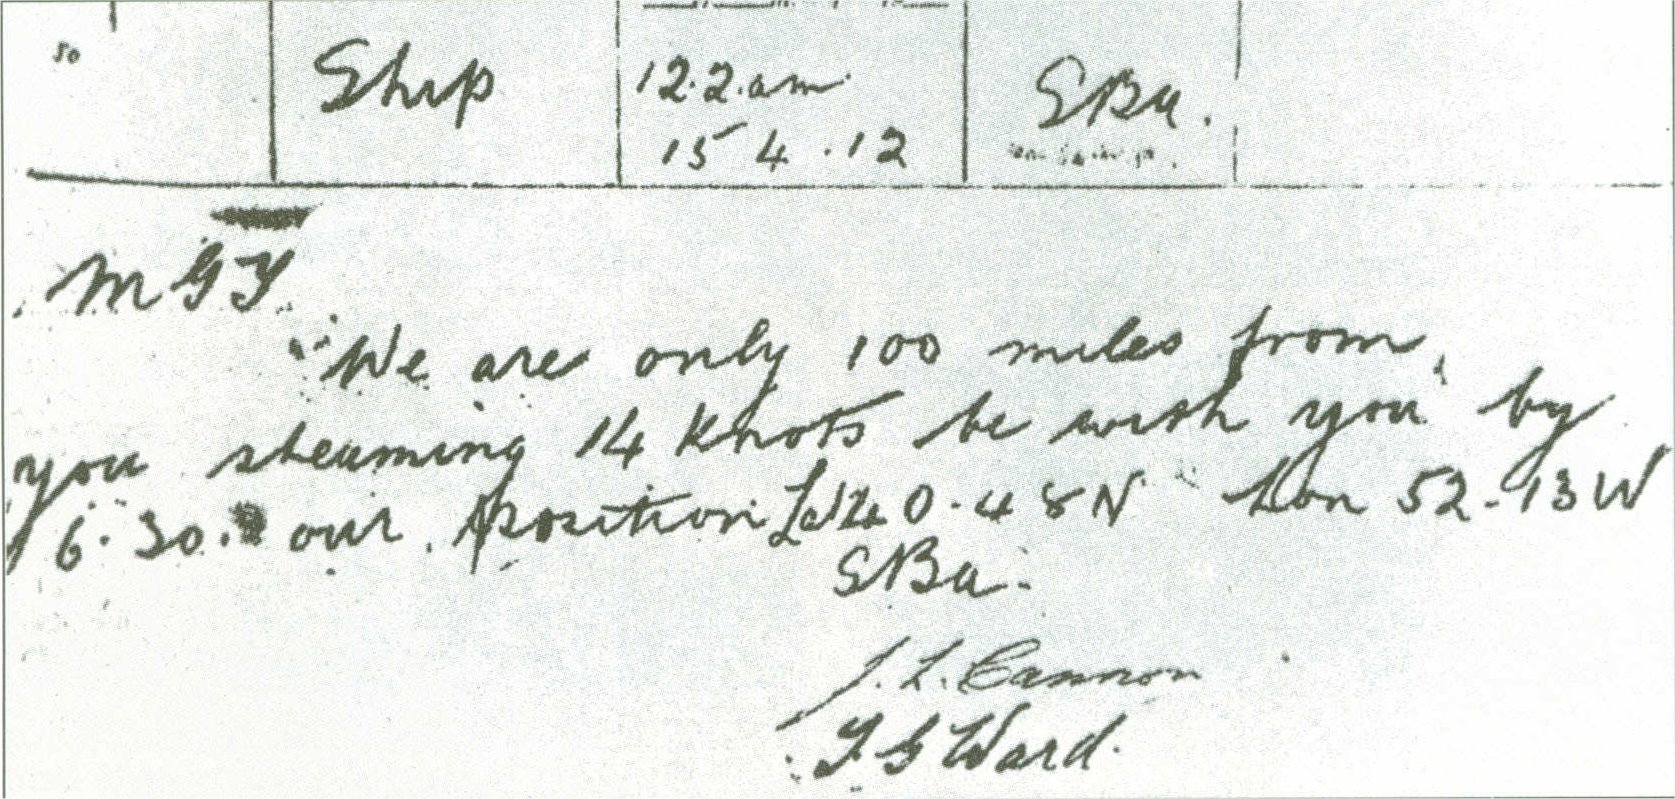 50 Ship 12.2.am SBa.
15 4.12
MGY
"We are only 100 miles from
you steaming 14 Knots be wish you by
6.30. our position 0.48N Lon 52-13W
SBa.
J. L. Cannon
F G Ward.